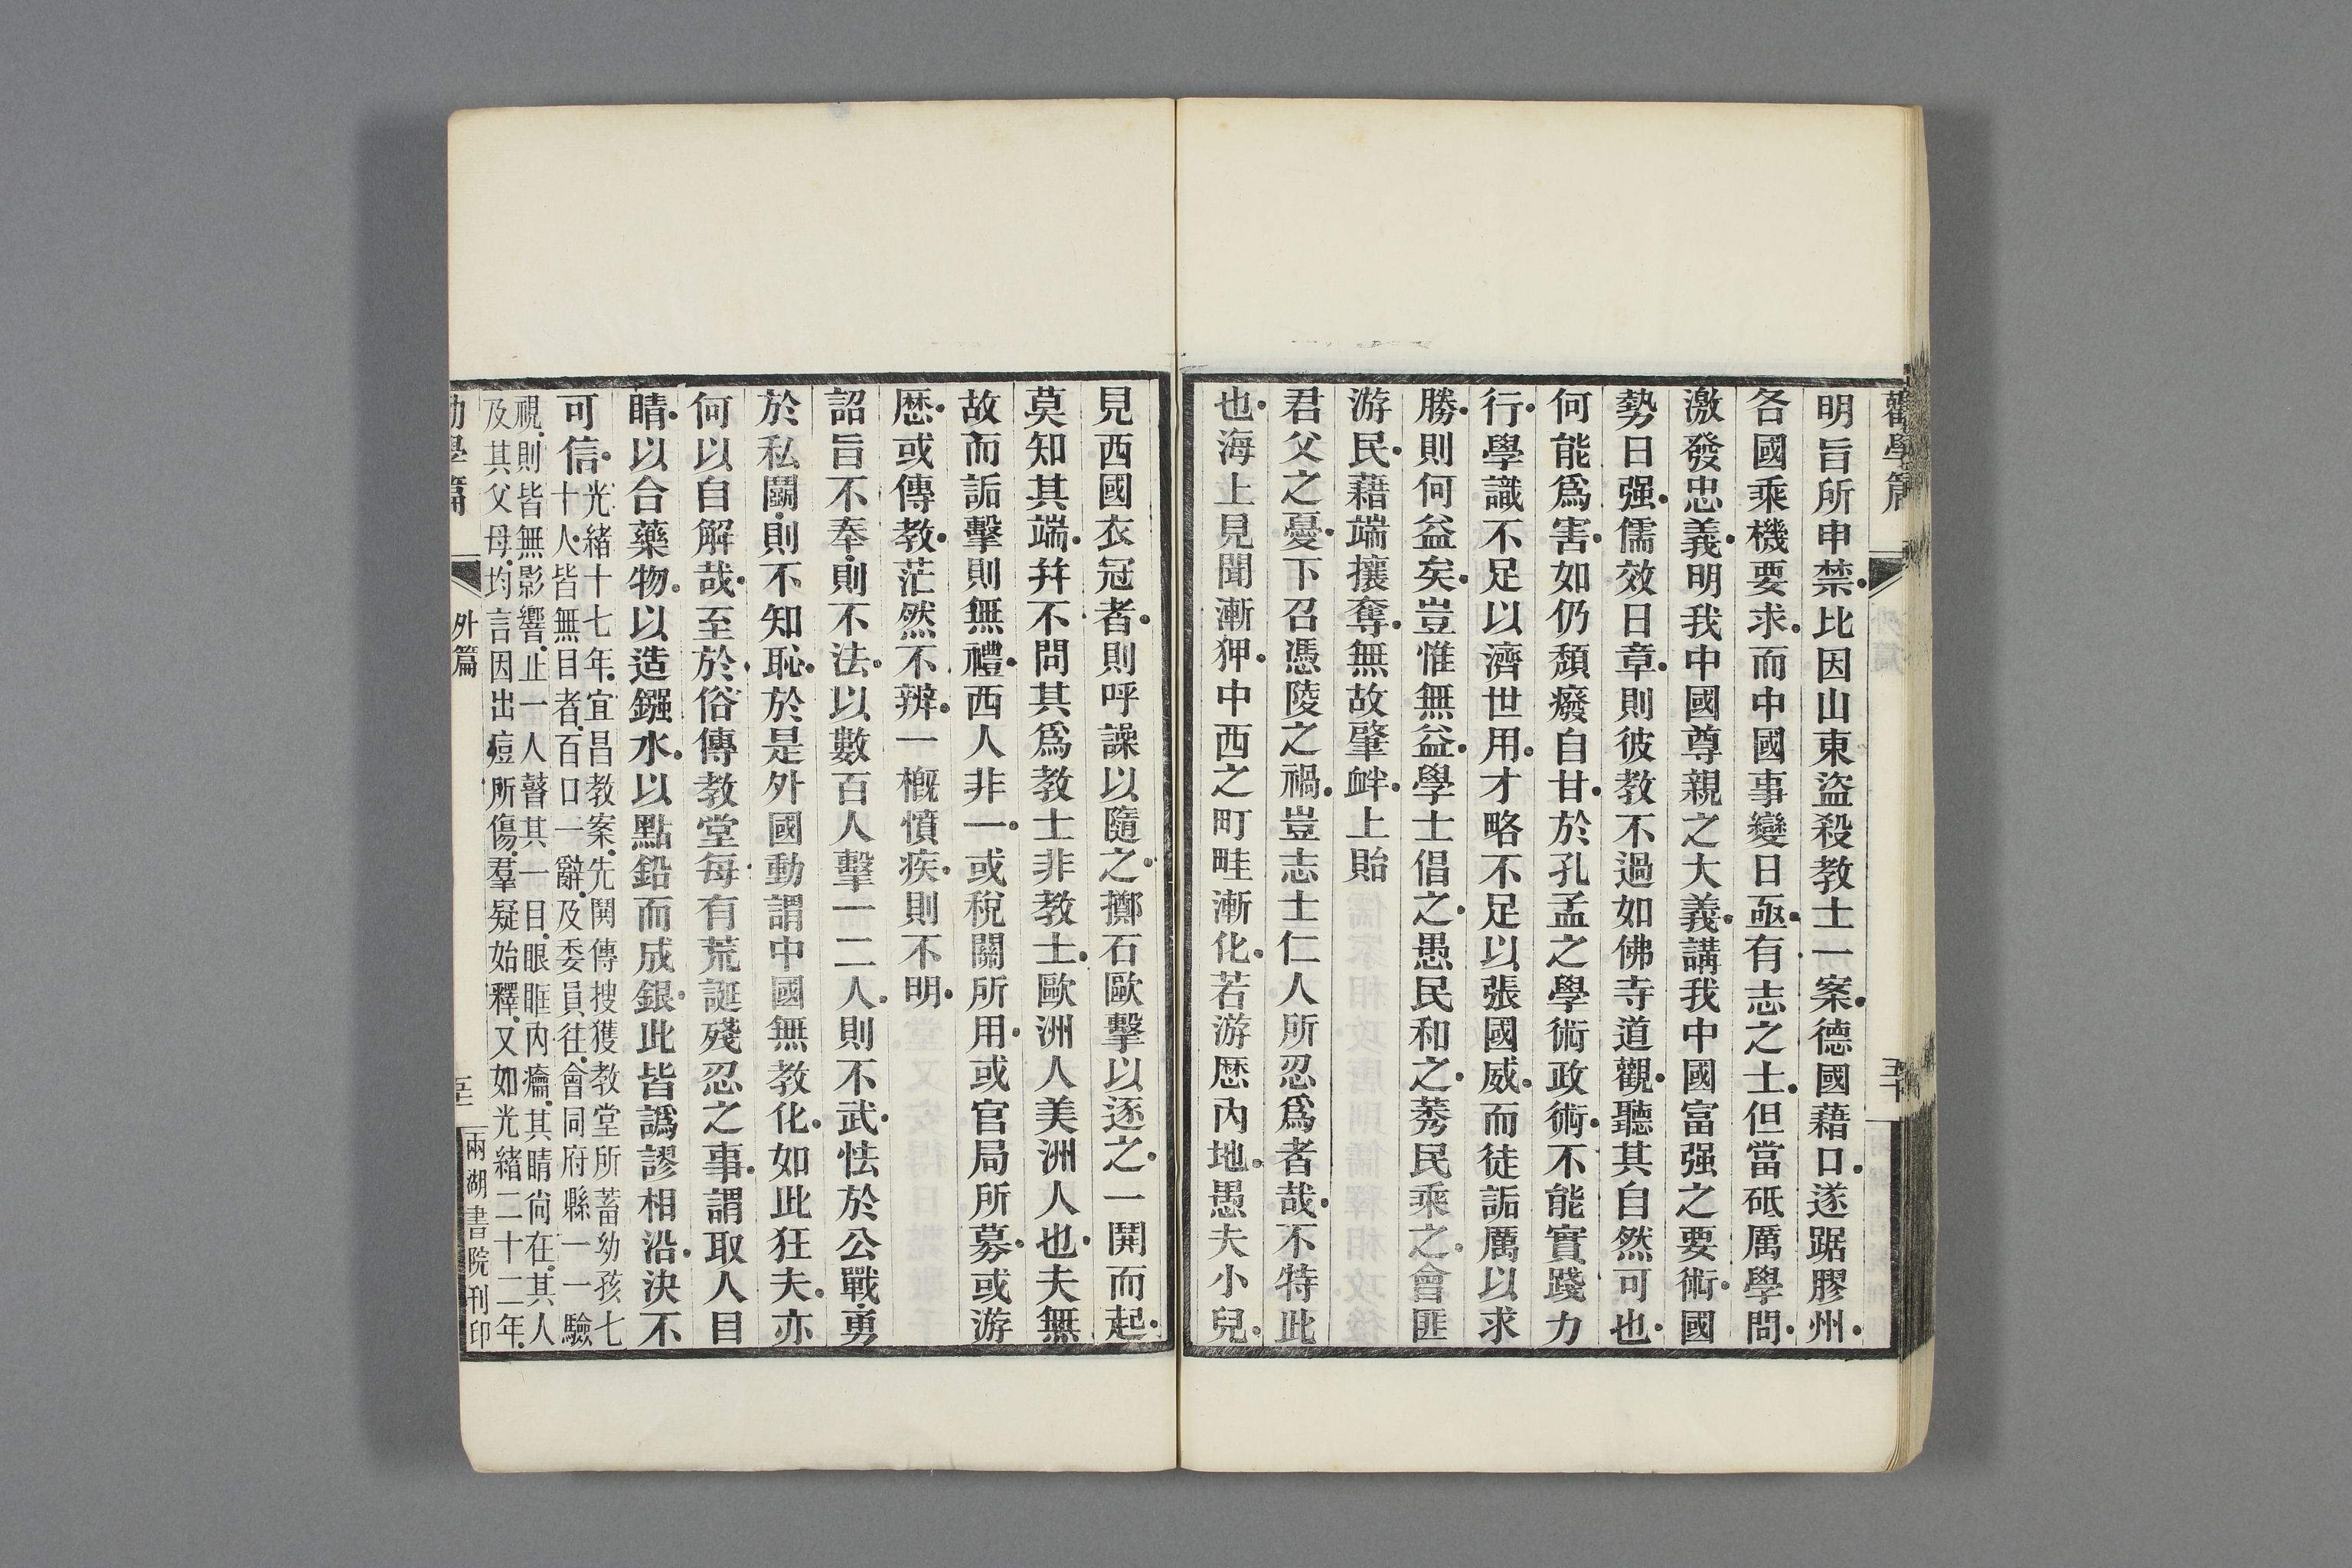 勸學篇
五十
明旨所申禁比因山東盜殺教士一案德國藉口遂踞膠州
各國乘機要求而中國事變日亟有志之士但當砥厲學問
激發忠義明我中國尊親之大義講我中國富强之要術國
勢日强儒效日章則彼教不過如佛寺道觀聽其自然可也
何能爲害如仍頹癈自甘於孔孟之學術政術不能實踐力
行學識不足以濟世用才略不足以張國威而徒詬厲以求
勝則何益矣豈惟無益學士倡之愚民和之莠民乘之會匪
游民藉端攘奪無故肇衅上貽
君父之憂下召憑陵之禍豈志士仁人所忍爲者哉不特此
也海上見聞漸狎中西之町畦漸化若游歷內地愚夫小兒
見西國衣冠者則呼譟以隨之擲石歐擊以逐之一鬨而起
莫知其端并不問其爲教士非教士歐洲人美洲人也夫無
故而詬擊則無禮西人非一或稅關所用或官局所募或游
歷或傳教茫然不辨一概憤疾則不明
詔旨不奉則不法以數百人擊一二人則不武怯於公戰勇
於私鬭則不知恥於是外國動謂中國無教化如此狂夫亦
何以自解哉至於俗傳教堂每有荒誕殘忍之事謂取人目
睛以合藥物以造鏹水以點鉛而成銀此皆譌謬相沿決不
可信
光緒十七年宜昌教案先鬨傳搜獲教堂所蓄幼孩七
十人皆無目者百口一辭及委員往會同府縣一一驗
視則皆無影響止一人瞽其一目眼眶內癟其睛尙在其人
及其父母均言因出痘所傷羣疑始釋又如光緒二十二年
勸學篇
外篇
兩湖書院刊印